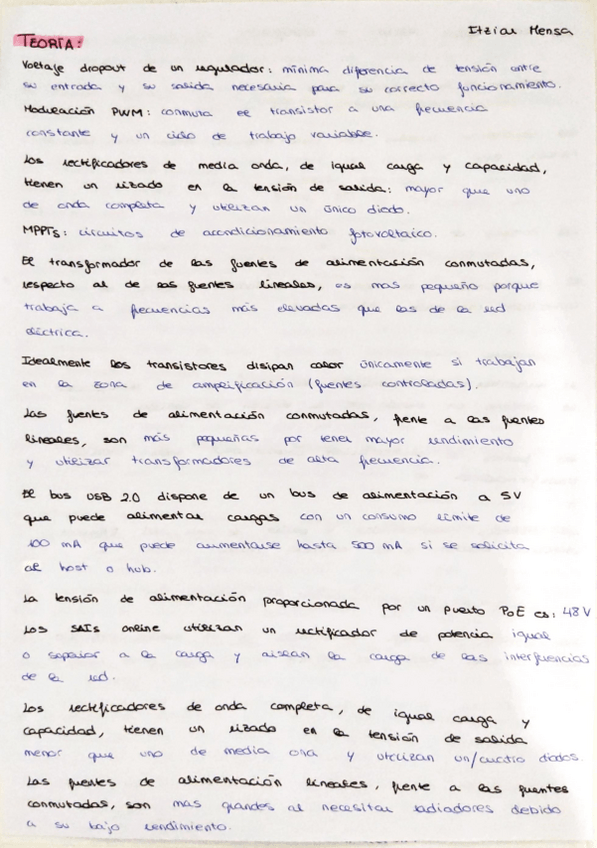 Itziar Mensa
TEORÍA:
Voltaje dropout de un regulador: mínima diferencia de tensión entre
su entrada y su salida necesaria para su correcto funcionamiento.
Modulación PWM: conmuta el transistor a una frecuencia
constante y un ciclo de trabajo variable.
Los rectificadores de media onda, de igual carga y capacidad,
tienen un rizado en la tensión de salida: mayor que uno
de onda completa y utilizan un único diodo.
MPPTs: circuitos de acondicionamiento fotovoltaico.
El transformador de las fuentes de alimentación conmutadas,
respecto al de las fuentes lineales, es mas pequeño porque
trabaja a frecuencias más elevadas que las de la red
eléctrica.
Idealmente los transistores disipan calor únicamente si trabajan
en la zona de amplificación (fuentes controladas).
Las fuentes de alimentación conmutadas, frente a las fuentes
lineales, son más pequeñas por tener mayor rendimiento
y utilizar transformadores de alta frecuencia.
El bus USB 2.0 dispone de un bus de alimentación a 5V
que puede alimentar cargas con un consumo límite de
100 mA que puede aumentarse hasta 500 mA si se solicita
al host o hub.
La tensión de alimentación proporcionada por un puerto PoE es: 48 V
Los SAIs online utilizan un rectificador de potencia igual
o superior a la carga y aislan la carga de las interferencias
de la red.
Los rectificadores de onda completa, de igual carga y
capacidad, tienen un rizado en la tensión de salida
menor que uno de media onda y utilizan un/cuatro diodos.
Las fuentes de alimentación lineales, frente a las fuentes
conmutadas, son mas grandes al necesitar radiadores debido
a su bajo rendimiento.